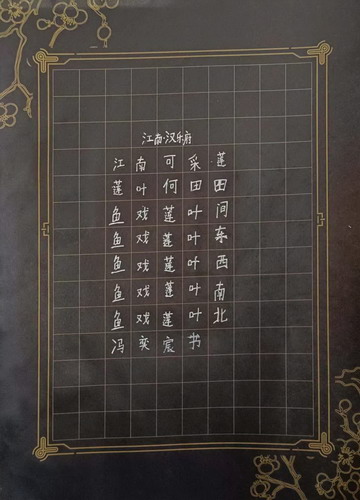 江南·汉乐府
江南可采莲
莲叶何田田
鱼戏莲叶间
鱼戏莲叶东
鱼戏莲叶西
鱼戏莲叶南
鱼戏莲叶北
冯奕宸书